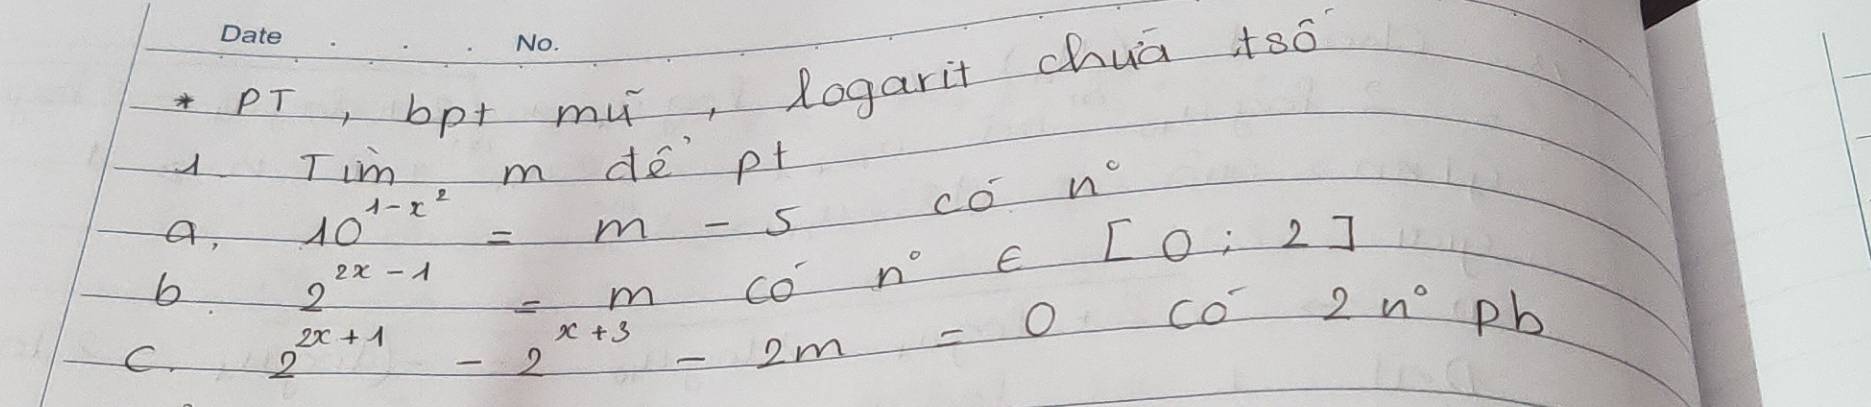 Date . . . No.
* PT, bpt mũ, logarit chứa tsố
1. Tìm m để pt
a, 10^{1-x^2} = m - 5 có n°
b. 2^{2x-1} = m có n° ∈ [0; 2]
c. 2^{2x+1} - 2^{x+3} - 2m = 0 có 2 n° pb